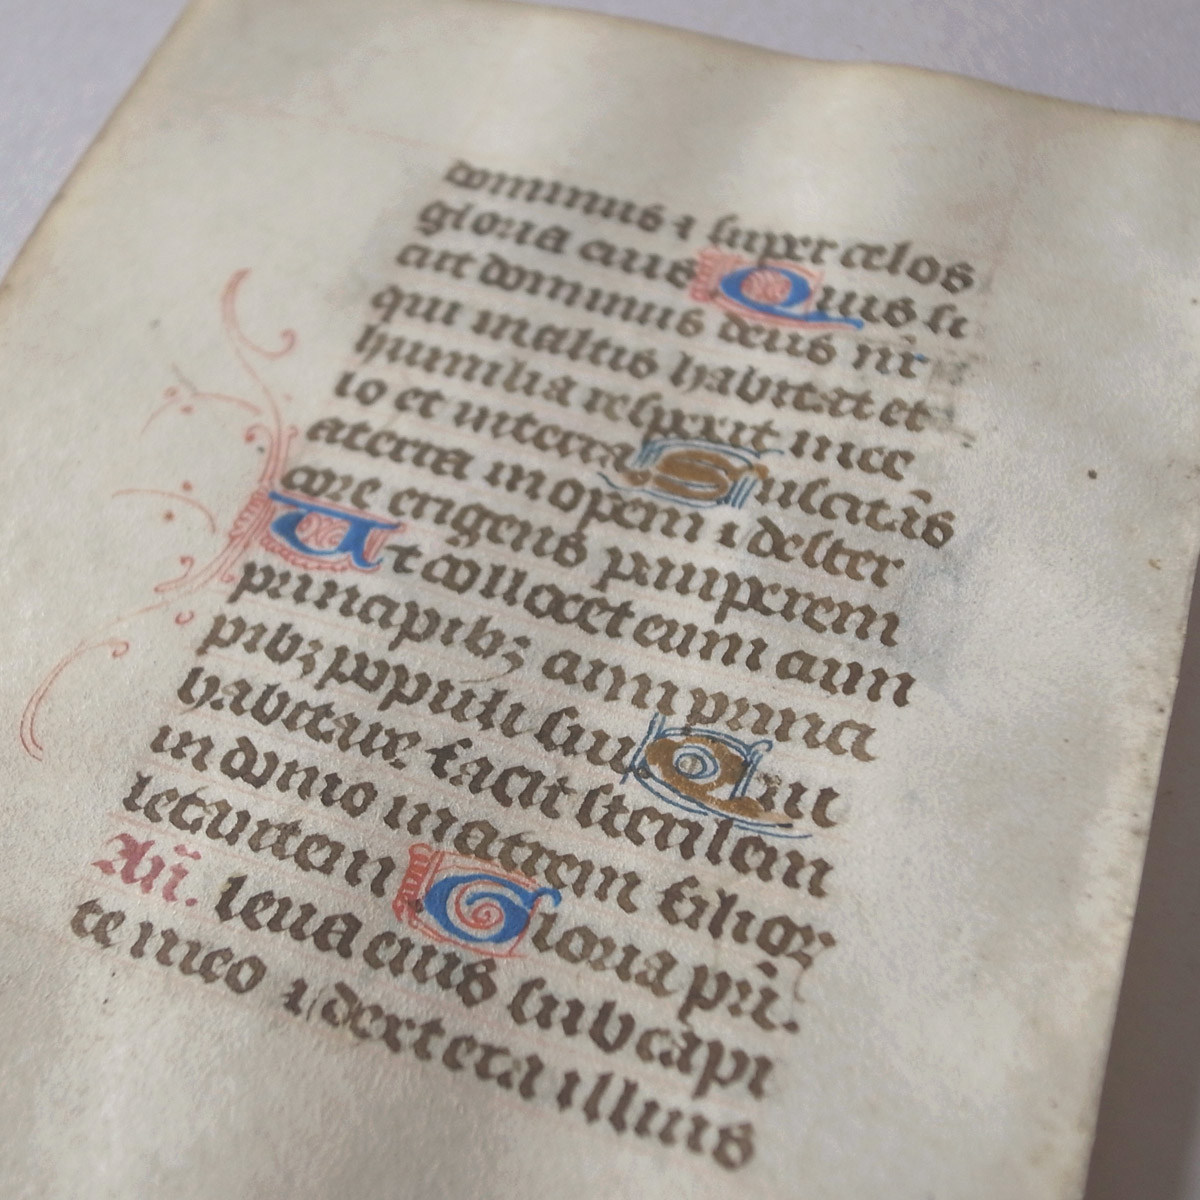 dominus ⁊ super celos
gloria eius Quis si
cut dominus deus nr̄
qui in altis habitat et
humilia respicit in ce
lo et in terra Suscitās
a terra inopem ⁊ de ster
core erigens pauperem
Ut collocet eum cum
principibꝫ cum princi
pibꝫ populi sui Qui
habitare facit sterilem
in domo matrem filioꝝ
letantem Gloria pr̄i.
Añ. leua eius sub capi
te meo ⁊ dextera illius